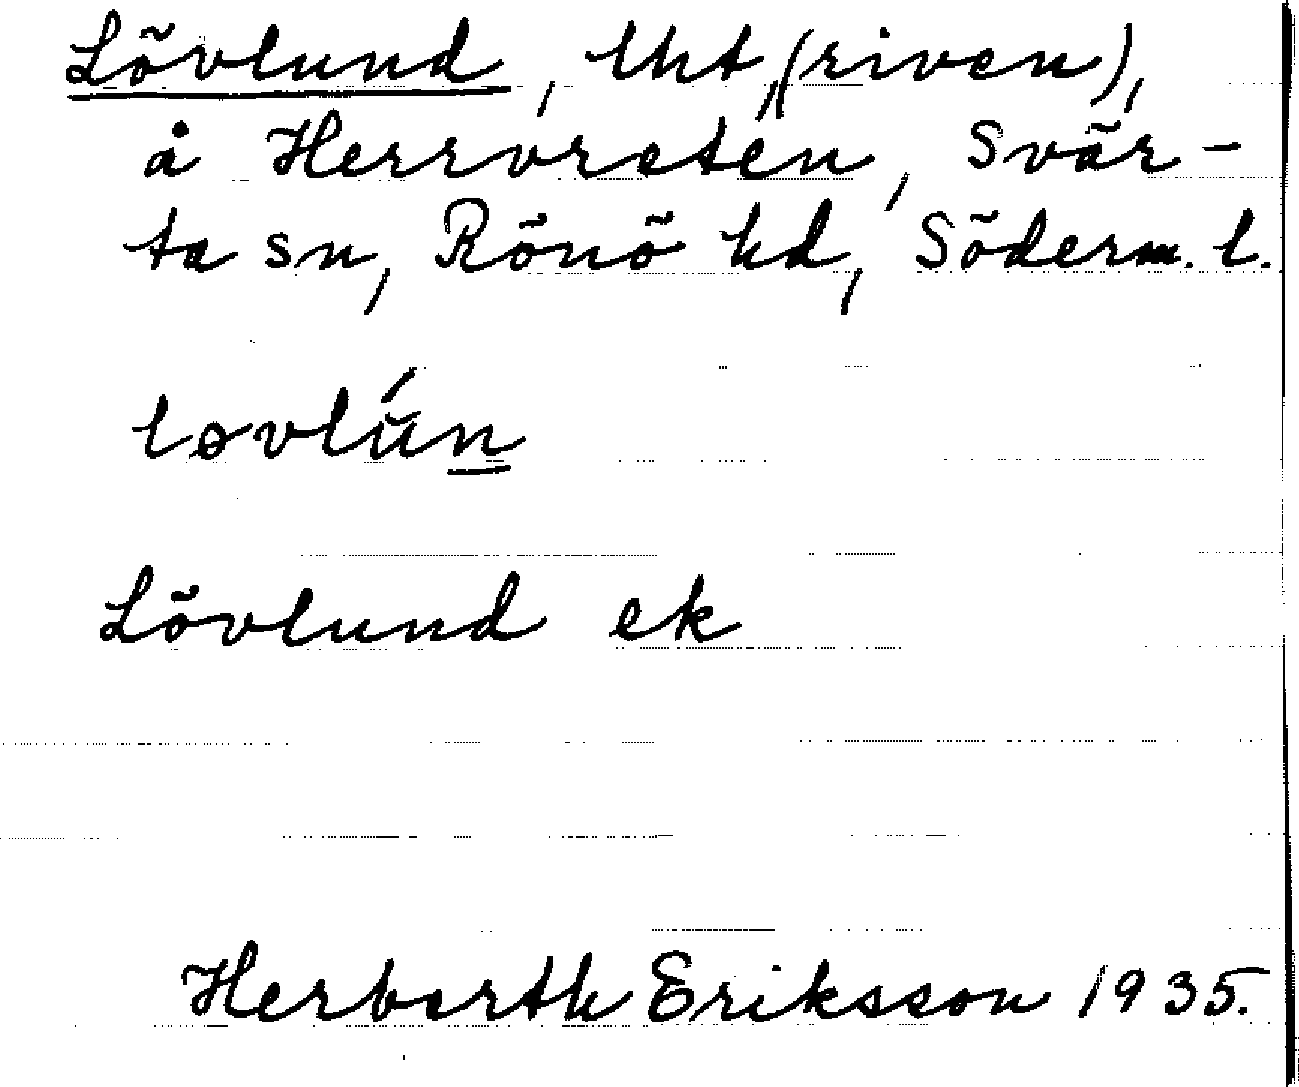 Lövlund, lht, (riven),
å Herrvreten, Svär-
ta sn, Rönö hd, Söderm. l.
løvlún
Lövlund ek
Herberth Eriksson 1935.